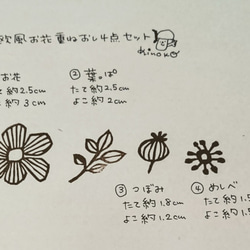 欧風お花重ねおし4点セット
kinoko
お花
約2.5cm
約3cm
②葉っぱ
たて約2.5cm
よこ約2cm
③つぼみ
たて約1.8cm
よこ約1.2cm
④めしべ
たて約1.5
よこ約1.5